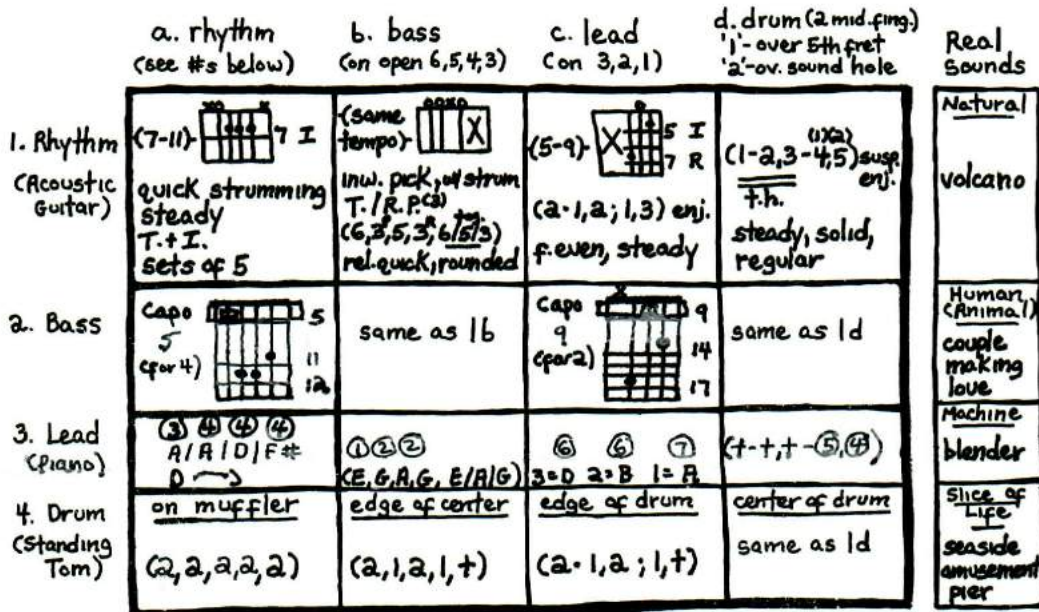 a. rhythm
(see #s below)
b. bass
(on open 6,5,4,3)
c. lead
(on 3,2,1)
d. drum (2 mid. fing.)
'1'- over 5th fret
'2'-ov. sound hole
Real
Sounds
1. Rhythm
(Acoustic
Guitar)
(7-11)-
7 I
quick strumming
steady
T. + I.
sets of 5
(same
tempo)-
X
inw. pick, w/ strum
T. / R.P. (3)
(6, 3, 5, 3, 6/5/3)
rel. quick, rounded
(5-9)-
X
5 I
7 R
(2·1,2; 1,3) enj.
f. even, steady
(1)(2)
(1-2,3-4,5) susp.
enj.
t.h.
steady, solid,
regular
Natural
volcano
2. Bass
Capo
5
(for 4)
5
11
12
same as 1b
Capo
9
(for 2)
x
9
14
17
same as 1d
Human
(Animal)
couple
making
love
3. Lead
(piano)
③ ④ ④ ④
A/A/D/F#
D
① ② ②
(E, G, A, G, E/A/G)
⑥ ⑥ ⑦
3=D 2=B 1=A
(t-t,t-⑤,④)
Machine
blender
4. Drum
(Standing
Tom)
on muffler
(2,2,2,2,2)
edge of center
(2,1,2,1,t)
edge of drum
(2·1,2; 1,t)
center of drum
same as 1d
Slice of
Life
seaside
amusement
pier